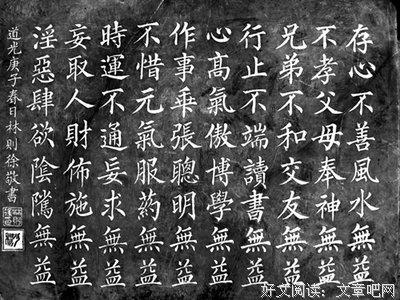 存心不善風水無益
不孝父母奉神無益
兄弟不和交友無益
行止不端讀書無益
心髙氣傲博學無益
作事乖張聰明無益
不惜元氣服葯無益
時運不通妄求無益
妄取人財佈施無益
淫惡肆欲陰隲無益
道光庚子春日林則徐敬書
好文阅读:文章吧网